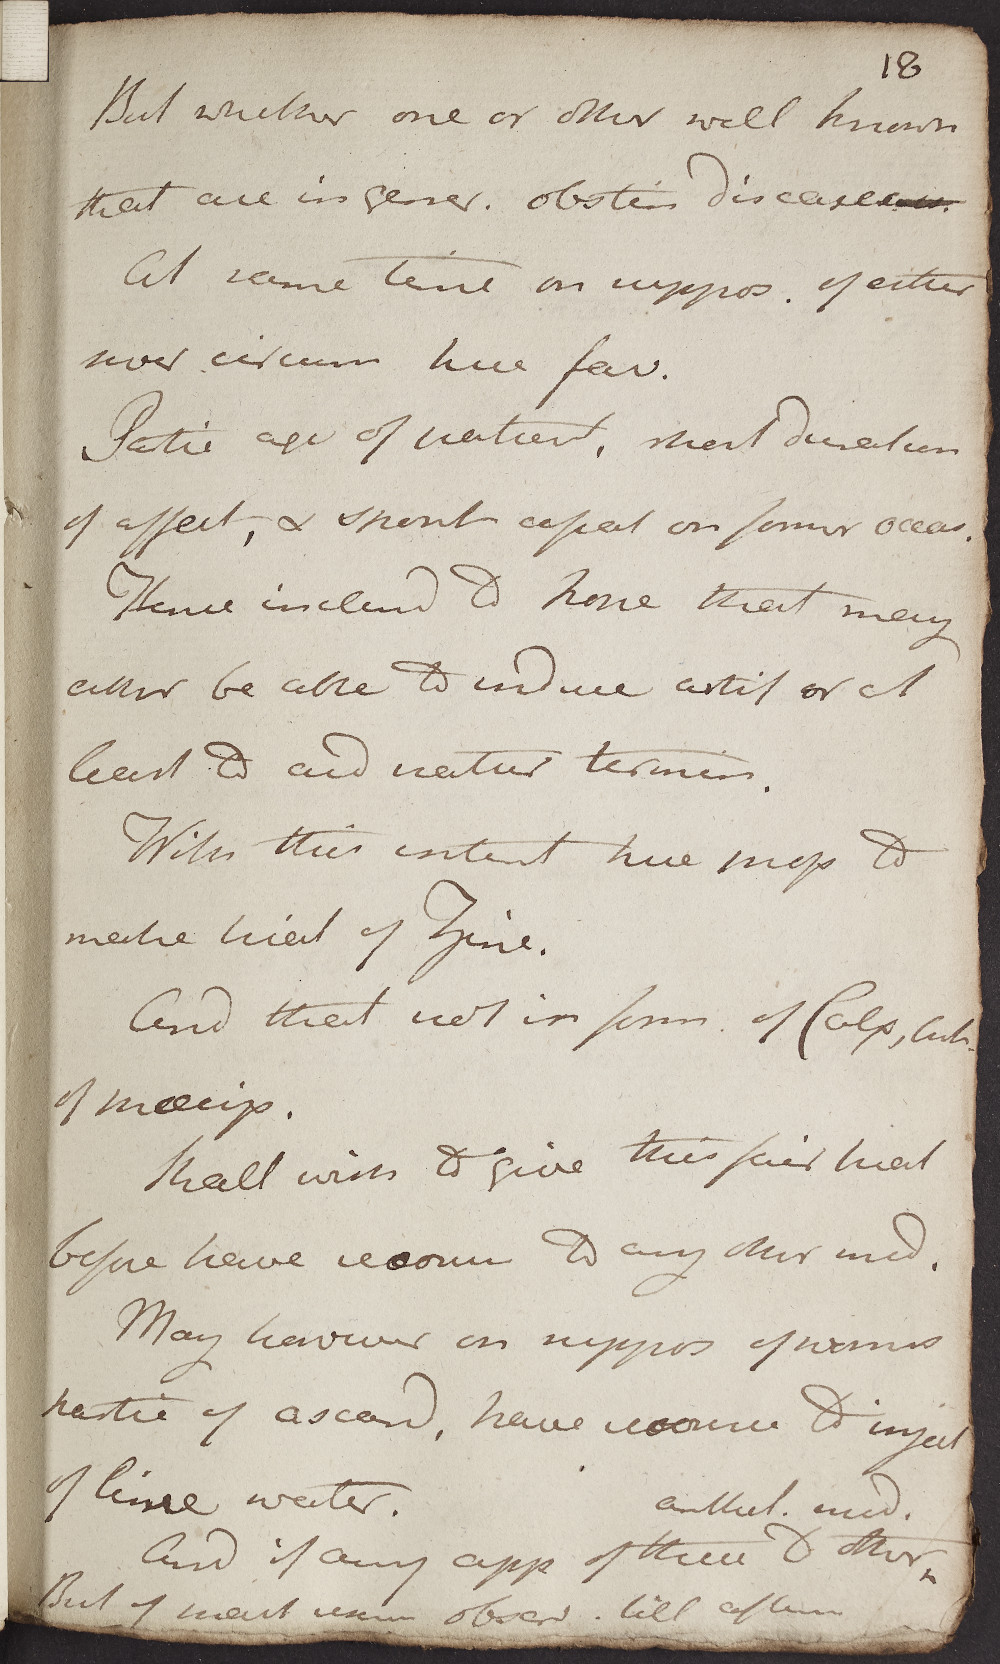 18
But whether one or other well known
that are in gener. obstin disease
At same time on suppos. of either
sever circum here fav.
Partic age of patient, short duration
of affect, & spont cessat on former occas.
Hence inclend to hope that may
either be able to induce artif or at
least to aid natur termin.
With this intent here prop to
make trial of Zinc.
And that not in form of Calx, but
of precip.
Shall wish to give this fair trial
before have recour to any other med.
May however on suppos of worms
partic of ascarid, have recourse to inject
of lime water.
anthel. med.
And if any app of these to other
But of next obser. till after